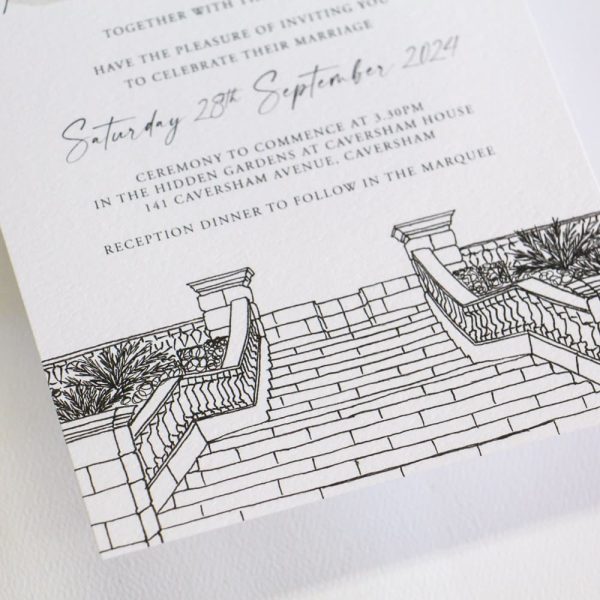 TOGETHER WITH
HAVE THE PLEASURE OF INVITING YOU
TO CELEBRATE THEIR MARRIAGE
Saturday 28th September 2024
CEREMONY TO COMMENCE AT 3.30PM
IN THE HIDDEN GARDENS AT CAVERSHAM HOUSE
141 CAVERSHAM AVENUE, CAVERSHAM
RECEPTION DINNER TO FOLLOW IN THE MARQUEE